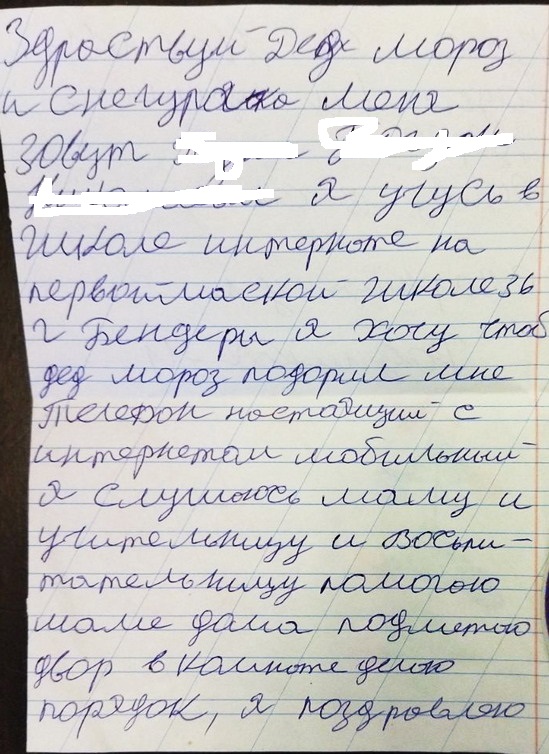 Здраствуй Дедх мороз
и снегурачка меня
зовут
я учусь в
школе интернате на
первоймаской школе 3ь
г Бендеры я хочу чтоб
дед мороз подорил мне
телефон настаящий с
интернетом мобильный
я слушаюсь маму и
учительницу и воспи-
тательницу помогою
маме дома подметаю
двор в комнате делаю
порядок, я поздровляю